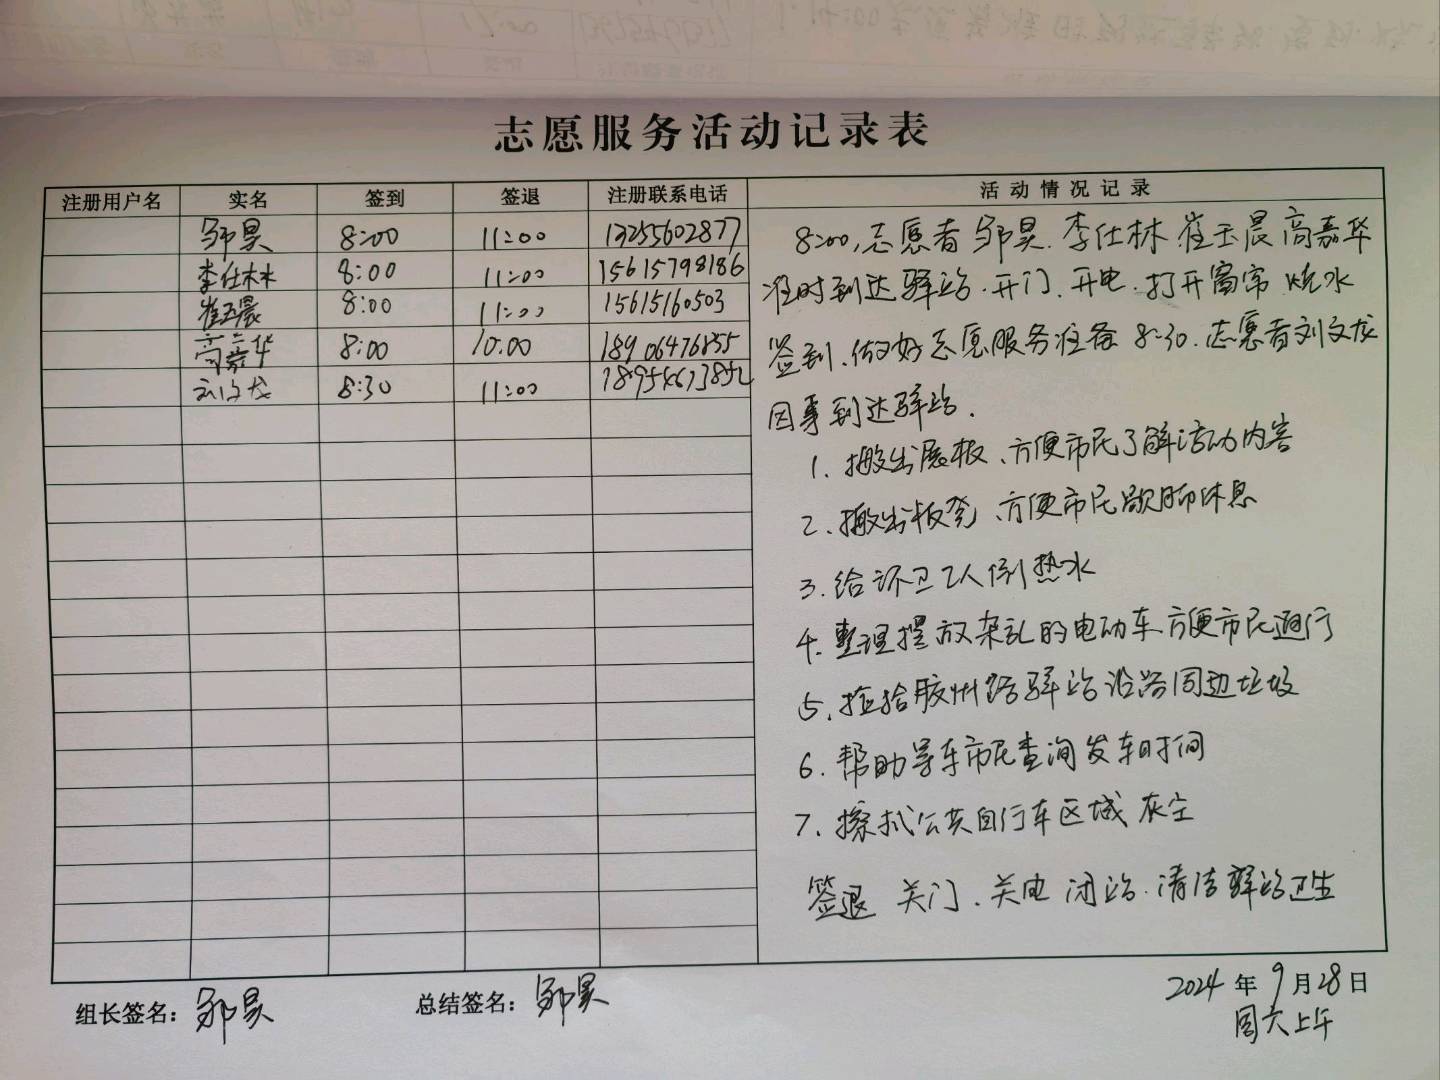 志愿服务活动记录表
注册用户名 实名 签到 签退 注册联系电话 活动情况记录
邹昊 8:00 11:00 13255602877
李仕林 8:00 11:00 15615798186
崔玉晨 8:00 11:00 15615160503
高嘉华 8:00 10:00 18906476855
刘文龙 8:30 11:00
8:00,志愿者邹昊.李仕林崔玉晨高嘉华
准时到达驿站.开门.开电.打开窗帘 烧水
签到、做好志愿服务准备 8:30.志愿者刘文龙
因事到达驿站.
1.搬出展板、方便市民了解活动内容
2.搬出板凳、方便市民歇脚休息
3.给环卫工人倒热水
4.整理摆放杂乱的电动车方便市民通行
5.捡拾胶州路驿站沿路周边垃圾
6.帮助等车市民查询发车时间
7.擦拭公共自行车区域灰尘
签退 关门、关电 闭站.清洁驿站卫生
组长签名：邹昊 总结签名：邹昊 2024年9月28日
周六上午